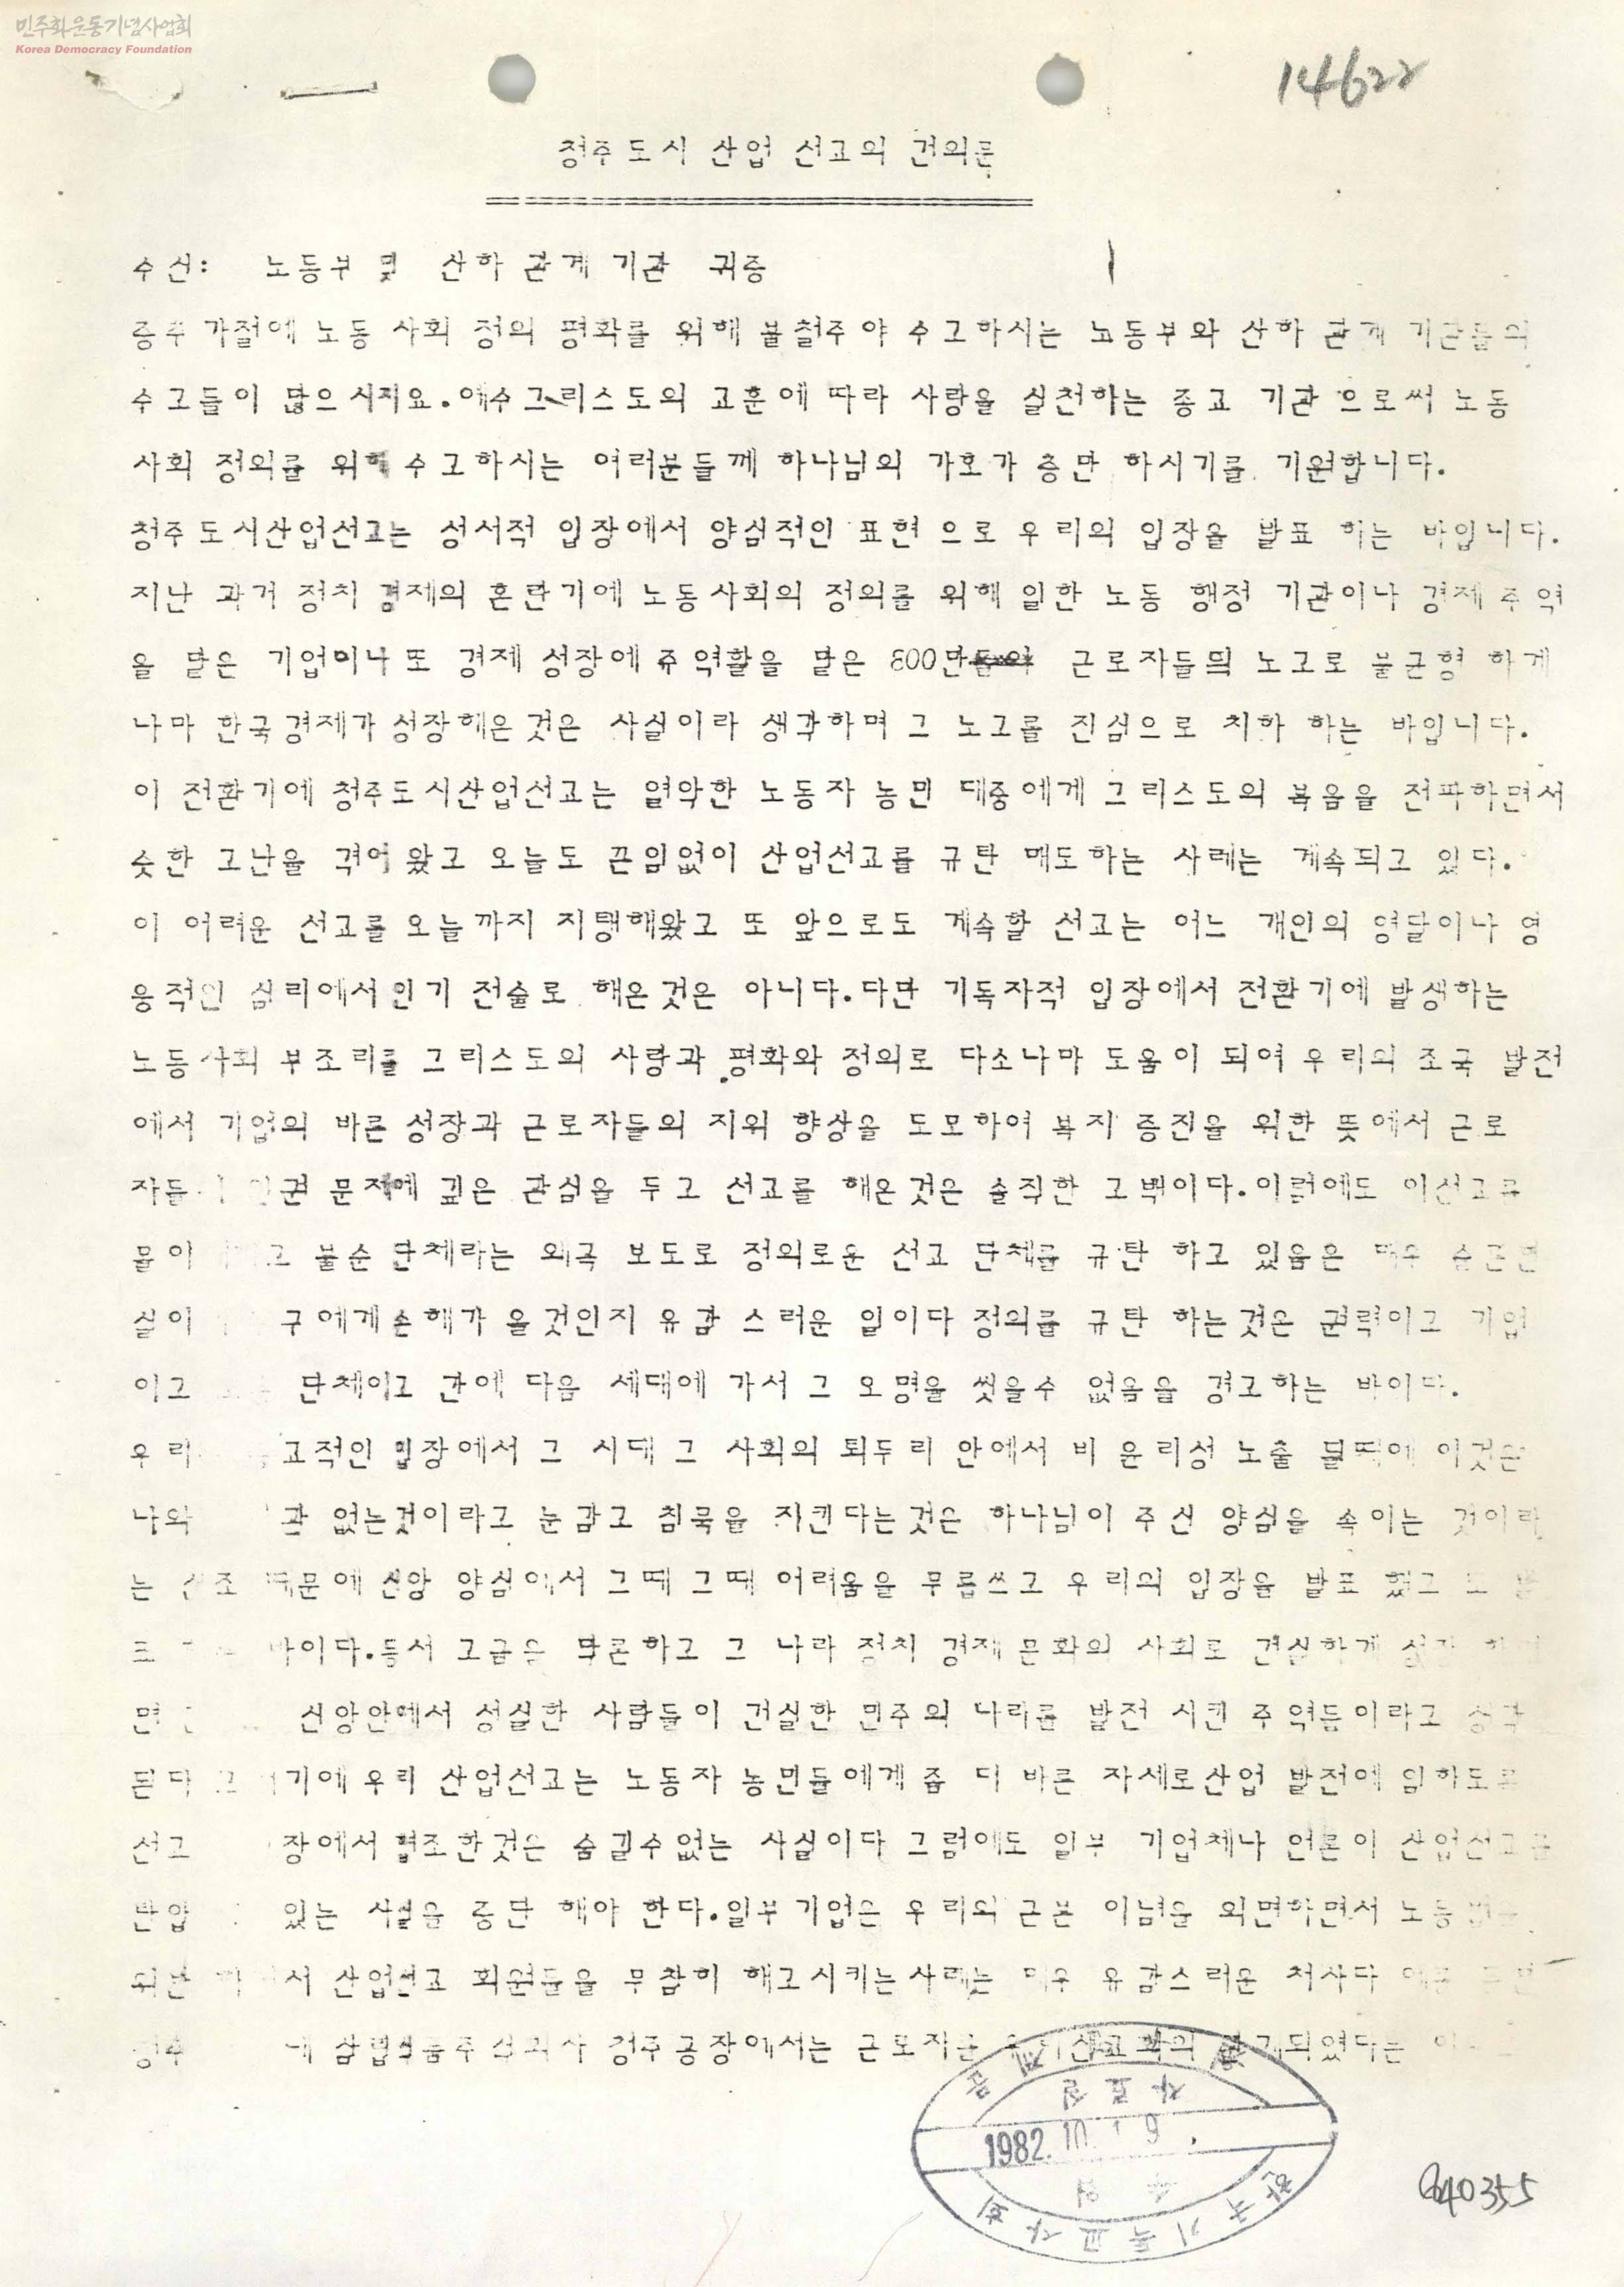 민주화운동기념사업회
Korea Democracy Foundation
14622
청주도시 산업 선교의 건의문
수신: 노동부 및 산하 관계 기관 귀중
중추 가절에 노동 사회 정의 평화를 위해 불철주야 수고하시는 노동부와 산하 관계 기관들의
수고들이 많으시지요.예수그리스도의 교훈에 따라 사랑을 실천하는 종교 기관 으로써 노동
사회 정의를 위해 수고하시는 여러분들께 하나님의 가호가 충만 하시기를 기원합니다.
청주도시산업선교는 성서적 입장에서 양심적인 표현 으로 우리의 입장을 발표 하는 바입니다.
지난 과거 정치 경제의 혼란기에 노동사회의 정의를 위해 일한 노동 행정 기관이나 경제 주역
을 맡은 기업이나 또 경제 성장에 주역활을 맡은 800만 근로자들의 노고로 불균형 하게
나마 한국경제가 성장해온것은 사실이라 생각하며 그 노고를 진심으로 치하 하는 바입니다.
이 전환기에 청주도시산업선교는 열악한 노동자 농민 대중에게 그리스도의 복음을 전파하면서
숫한 고난을 격어왔고 오늘도 끈임없이 산업선교를 규탄 매도하는 사례는 계속되고 있다.
이 어려운 선교를 오늘까지 지탱해왔고 또 앞으로도 계속할 선교는 어느 개인의 영달이나 영
웅적인 심리에서인기 전술로 해온것은 아니다.다만 기독자적 입장에서 전환기에 발생하는
노동사회 부조리를 그리스도의 사랑과 평화와 정의로 다소나마 도움이 되여 우리의 조국 발전
에서 기업의 바른 성장과 근로자들의 지위 향상을 도모하여 복지 증진을 위한 뜻에서 근로
자들 권 문제에 깊은 관심을 두고 선교를 해온것은 솔직한 고백이다.이럼에도 이선교를
물이 불순 단체라는 왜곡 보도로 정의로운 선교 단체를 규탄 하고 있음은 매우
실이 구에게손해가 올것인지 유감 스러운 일이다 정의를 규탄 하는것은 권력이고 기업
이고 단체이고 간에 다음 세대에 가서 그 오명을 씻을수 없음을 경고하는 바이다.
우리 교적인 입장에서 그 시대 그 사회의 퇴두리 안에서 비 윤리성 노출 될때에 이것은
나와 관 없는것이라고 눈감고 침묵을 지킨다는것은 하나님이 주신 양심을 속이는 것이라
는 때문에 신앙 양심에서 그때 그때 어려움을 무릅쓰고 우리의 입장을 발표 했고 또
바이다.동서 고금을 막론하고 그 나라 정치 경제 문화의 사회로 건실하게
면 신앙안에서 성실한 사람들이 건실한 민주의 나라를 발전 시킨 주역듬이라고 생각
된다 기에 우리 산업선교는 노동자 농민들에게 좀 더 바른 자세로산업 발전에 임하도록
선교 장에서 협조한것은 숨길수없는 사실이다 그럼에도 일부 기업체나 언론이 산업선교를
탄압 있는 사실을 중단 해야 한다.일부기업은 우리의 근본 이념을 외면하면서 노동
위반 서 산업선교 회원들을 무참히 해고시키는사례는 매우 유감스러운 처사다
청주 내 삼립식품주식회사 청주공장에서는 되었다는
자료실
1982.10.19.
한국기독교
040355